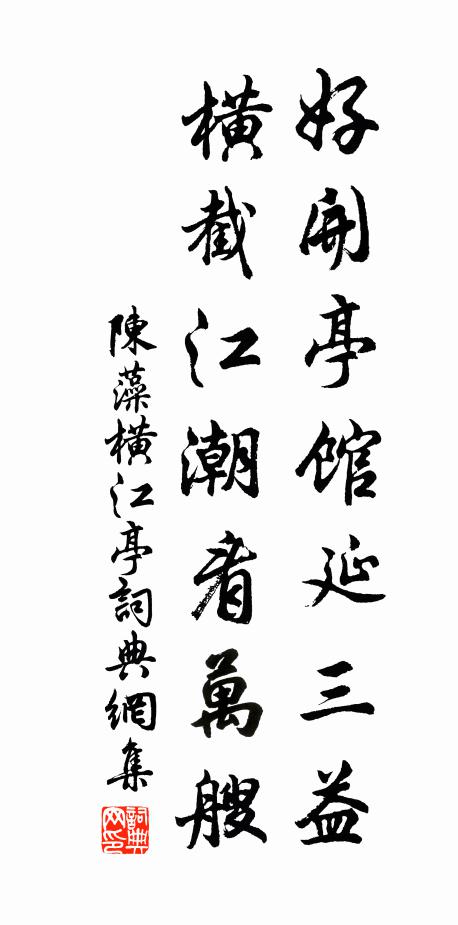 好開亭館延三益
橫截江潮看萬艘
陳藻橫江亭詞典網集
詞典网印